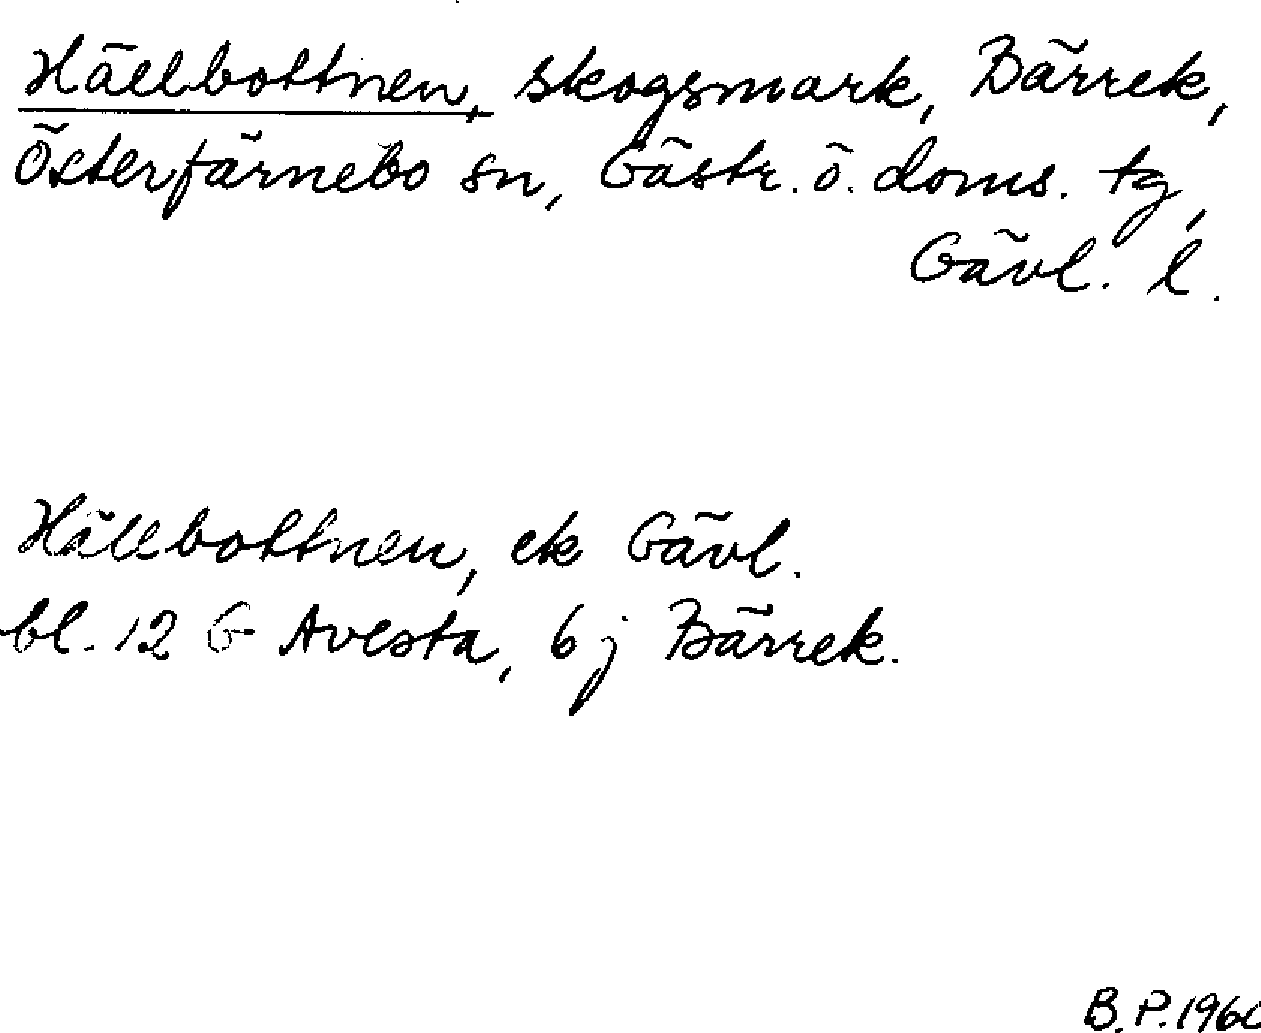 Hällbottnen, skogsmark, Bärrek,
Österfärnebo sn, Gästr. ö. doms. tg,
Gävl. l.
Hällbottnen, ek Gävl.
bl. 12 G Avesta, 6 j Bärrek.
B. P.